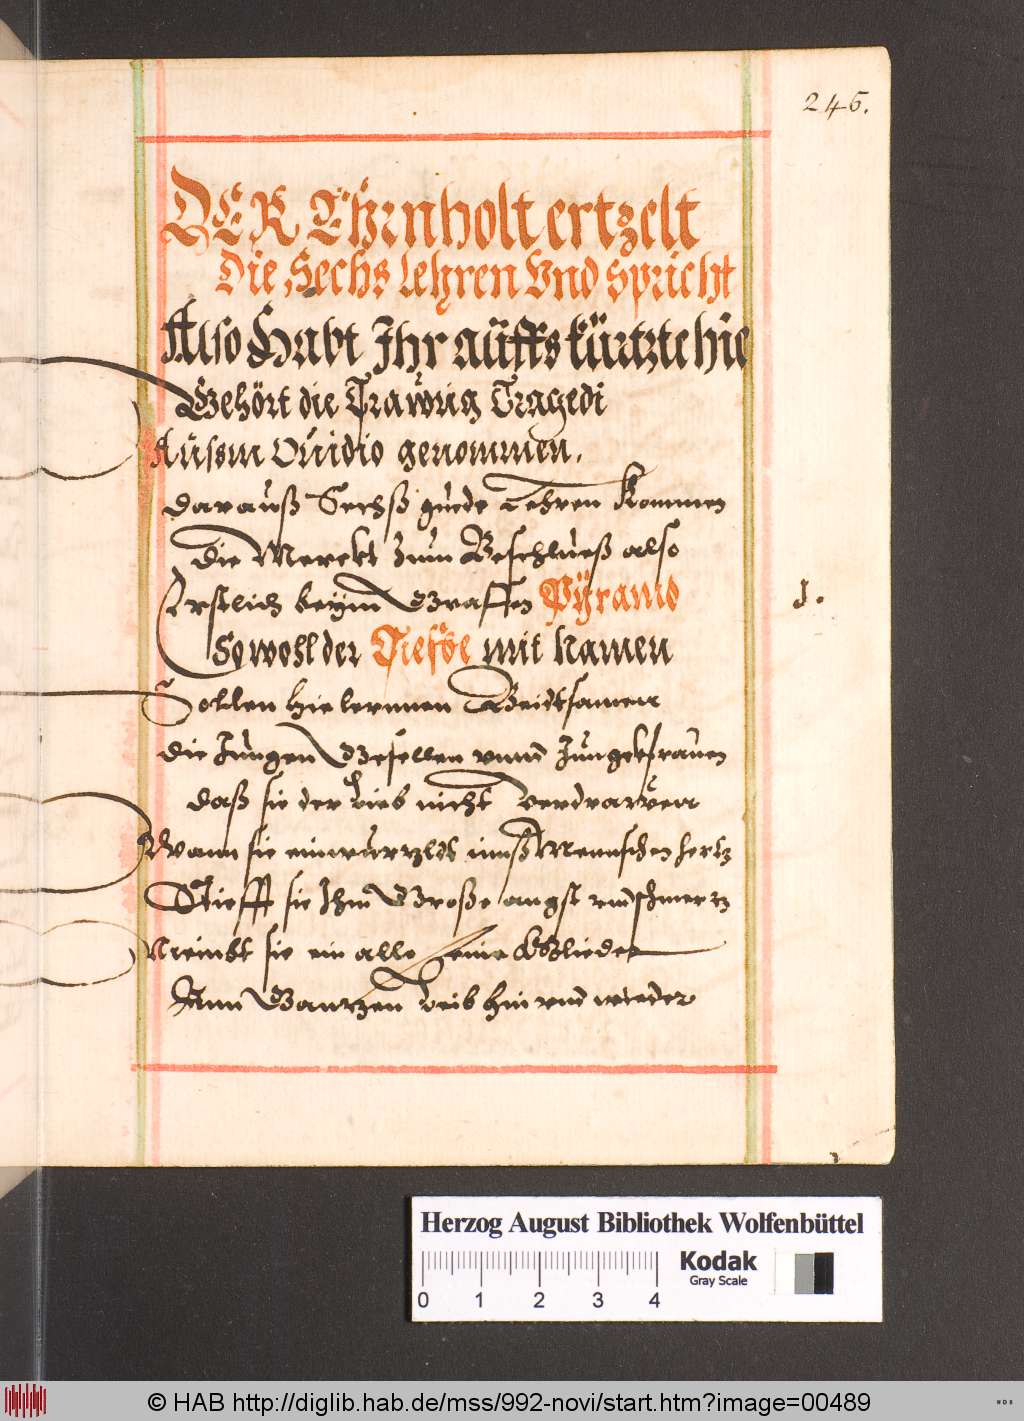 246.
DER Ehrnholt ertzelt
Die Sechs Lehren Vnd Spricht
Also Habt Ihr auffs kürtzte hie
Gehört die Trawrig Tragedi
Aussm Ouidio genommen.
darauß Sechß guede Lehren Kommen
die Merckt zum Beschlueß also
Erstlich beÿm Graffen Pÿramo
Sowohl der Tiesbe mit Namen
Sollen hie lernnen
die Jungen Gesellen vnnd Jungckfrauen
daß sie der Lieb nicht
Wann sie einwurtzldt innß Mennschen hertz
Stiefft sie Ihm Große angst vnd schmertz
sie ein alle Seine Glieder
Inn Gantzen Leib hin vnd wieder
1.
Herzog August Bibliothek Wolfenbüttel
Kodak
Gray Scale
0 1 2 3 4
© HAB http://diglib.hab.de/mss/992-novi/start.htm?image=00489